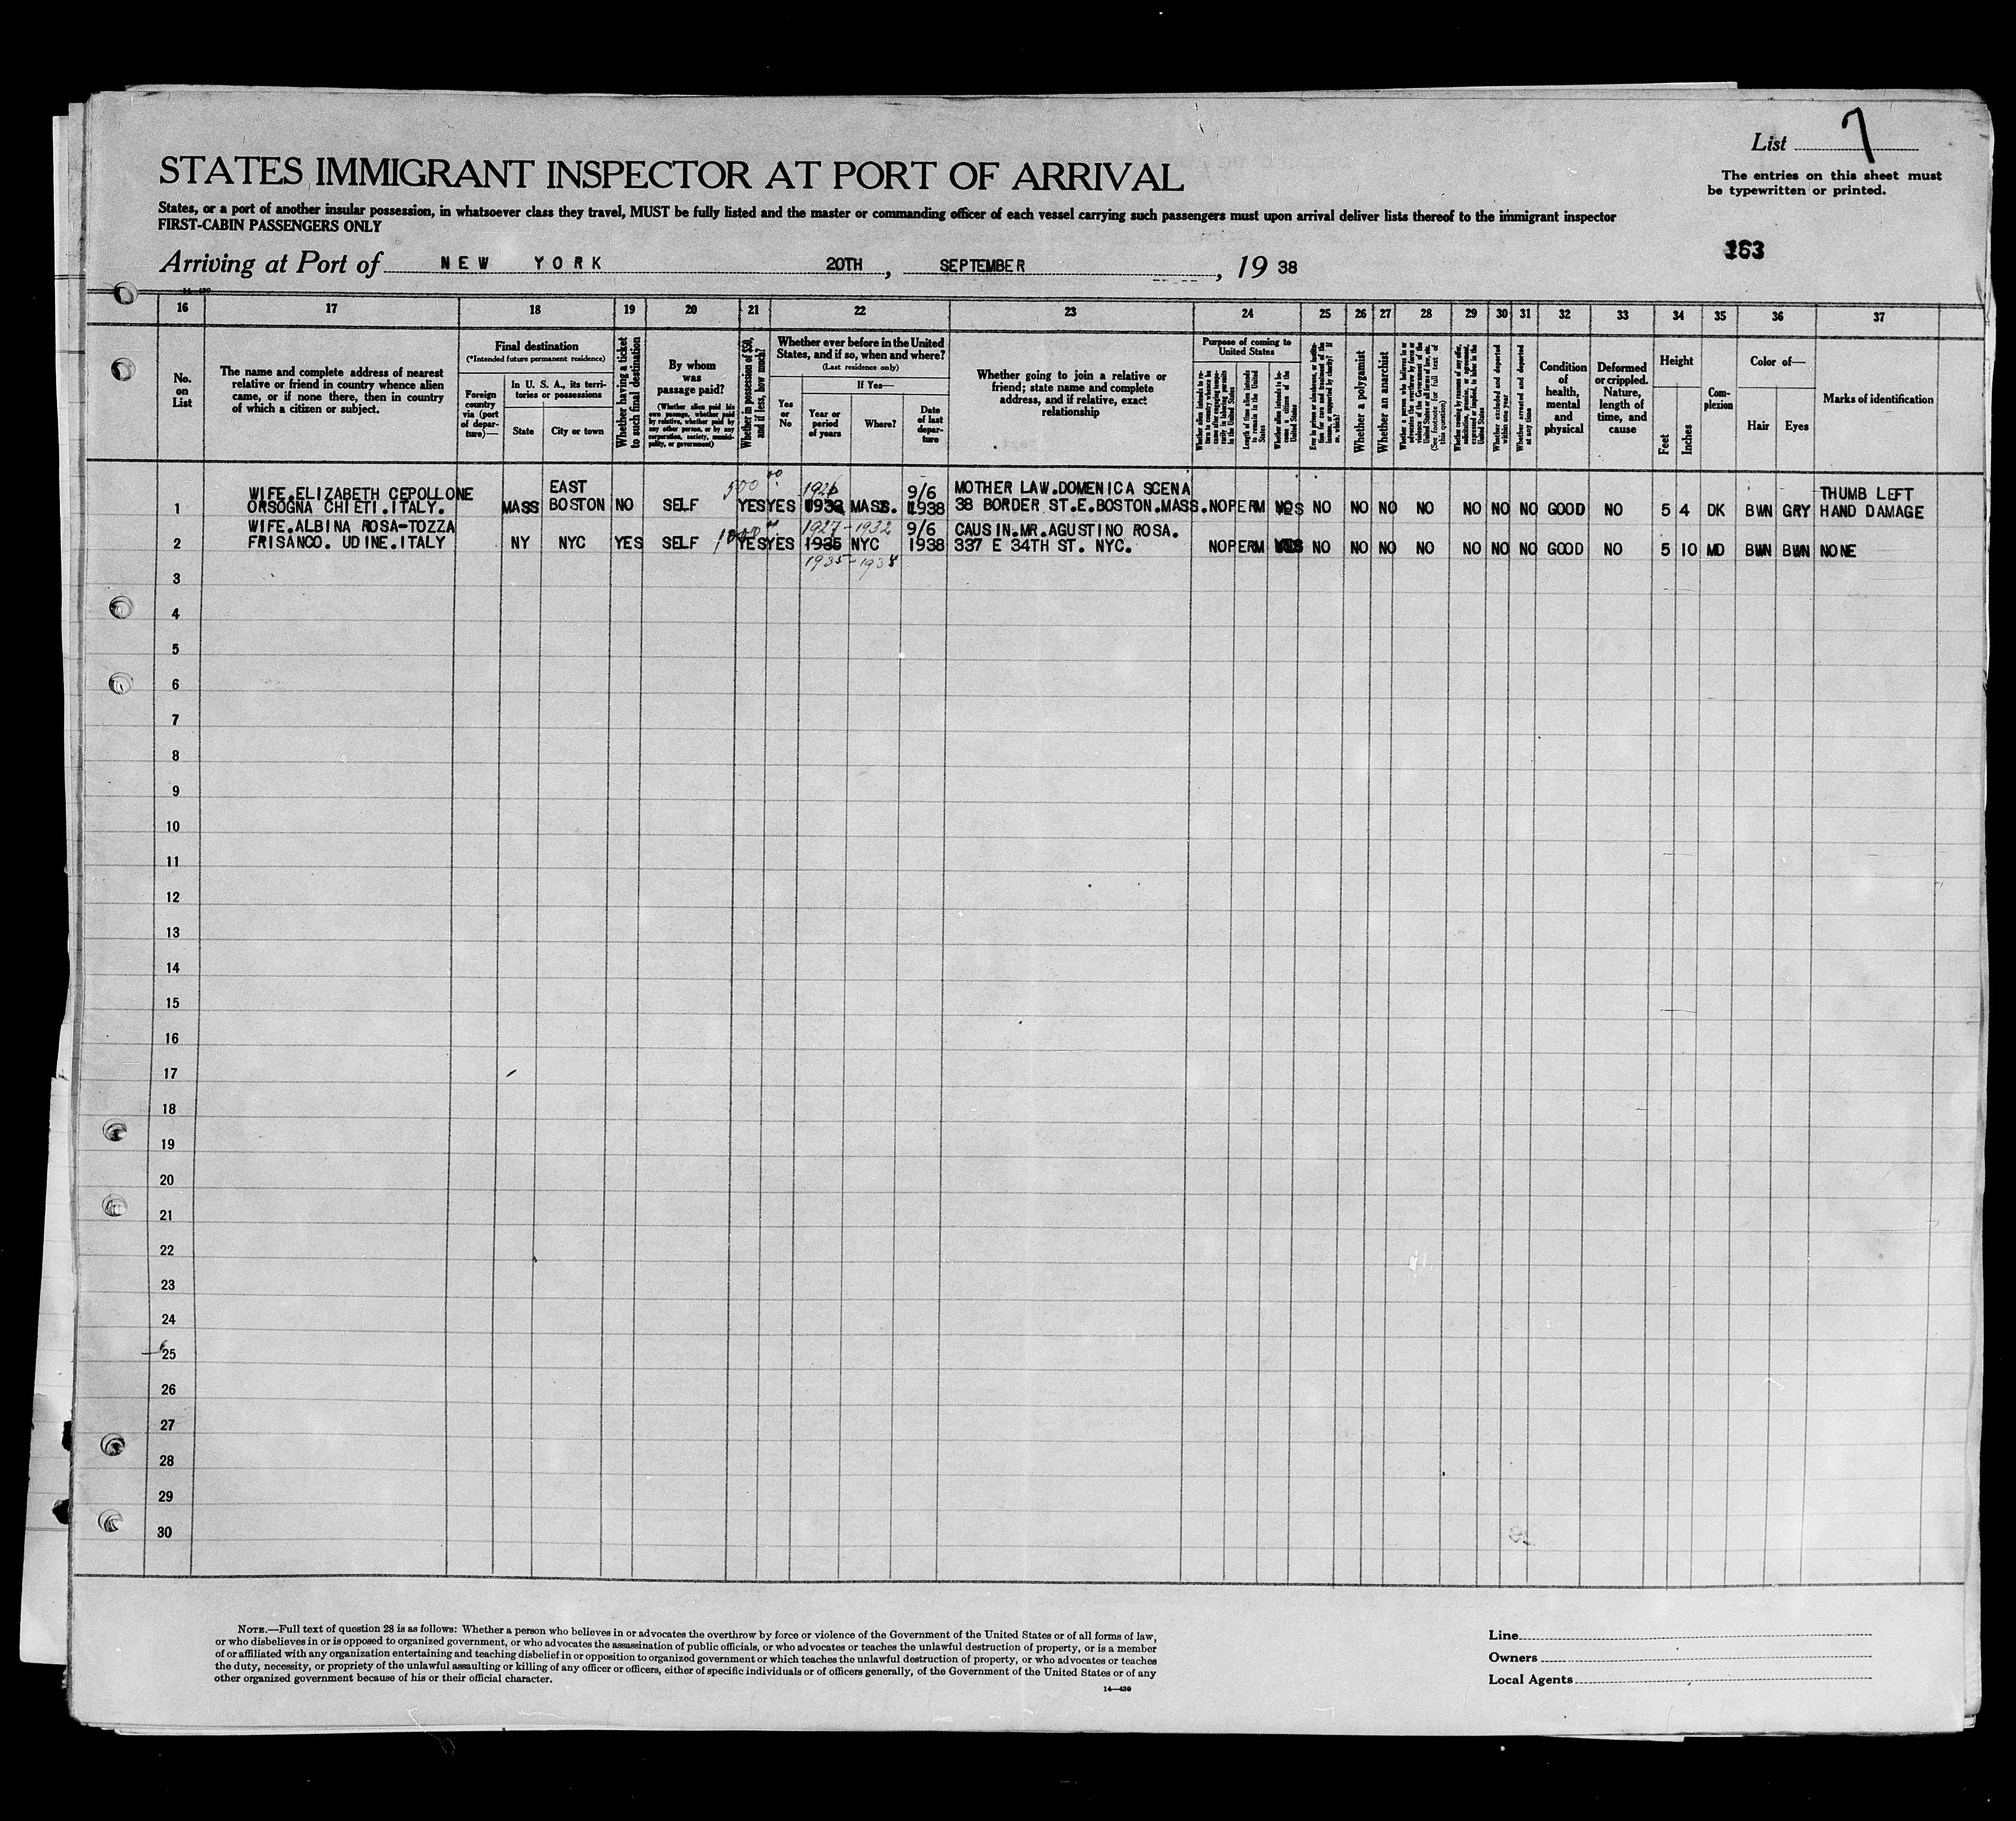 List 7
STATES IMMIGRANT INSPECTOR AT PORT OF ARRIVAL
The entries on this sheet must
be typewritten or printed.
States, or a port of another insular possession, in whatsoever class they travel, MUST be fully listed and the master or commanding officer of each vessel carrying such passengers must upon arrival deliver lists thereof to the immigrant inspector
FIRST-CABIN PASSENGERS ONLY
163
Arriving at Port of NEW YORK 20TH, SEPTEMBER, 19 38
14—430
16 17 18 19 20 21 22 23 24 25 26 27 28 29 30 31 32 33 34 35 36 37
No.
on
List
The name and complete address of nearest
relative or friend in country whence alien
came, or if none there, then in country
of which a citizen or subject.
Final destination
(*Intended future permanent residence)
Foreign
country
via (port
of depar-
ture)—
In U. S. A., its terri-
tories or possessions
State
City or town
Whether having a ticket
to such final destination
By whom
was
passage paid?
(Whether alien paid his
own passage, whether paid
by relative, whether paid by
any other person, or by any
corporation, society, munici-
pality, or government)
Whether in possession of $50,
and if less, how much?
Whether ever before in the United
States, and if so, when and where?
(Last residence only)
Yes
or
No
If Yes—
Year or
period
of years
Where?
Date
of last
depar-
ture
Whether going to join a relative or
friend; state name and complete
address, and if relative, exact
relationship
Purpose of coming to
United States
Length of time alien intends
to remain in the United
States
Whether alien intends to be-
come a citizen of the
United States
Whether a polygamist
Whether an anarchist
(See footnote for full text of
this question)
Whether excluded and deported
within one year
Whether arrested and deported
at any time
Condition
of
health,
mental
and
physical
Deformed
or crippled.
Nature,
length of
time, and
cause
Height
Feet
Inches
Com-
plexion
Color of—
Hair
Eyes
Marks of identification
500 00 1926
WIFE.ELIZABETH CEPOLLONE EAST 9/6 MOTHER LAW.DOMENICA SCENA THUMB LEFT
1 ORSOGNA CHIETI.ITALY. MASS BOSTON NO SELF YES YES MASS. 1938 38 BORDER ST.E.BOSTON.MASS. NO PERM YES NO NO NO NO NO NO NO GOOD NO 5 4 DK BWN GRY HAND DAMAGE
WIFE.ALBINA ROSA-TOZZA 1927-1932 9/6 CAUSIN.MR.AGUSTINO ROSA.
2 FRISANCO. UDINE.ITALY NY NYC YES SELF YES YES 1935 NYC 1938 337 E 34TH ST. NYC. NO PERM YES NO NO NO NO NO NO NO GOOD NO 5 10 MD BWN BWN NONE
1935-1938
3
4
5
6
7
8
9
10
11
12
13
14
15
16
17
18
19
20
21
22
23
24
25
26
27
28
29
30
NOTE.—Full text of question 28 is as follows: Whether a person who believes in or advocates the overthrow by force or violence of the Government of the United States or of all forms of law,
or who disbelieves in or is opposed to organized government, or who advocates the assassination of public officials, or who advocates or teaches the unlawful destruction of property, or is a member
of or affiliated with any organization entertaining and teaching disbelief in or opposition to organized government or which teaches the unlawful destruction of property, or who advocates or teaches
the duty, necessity, or propriety of the unlawful assaulting or killing of any officer or officers, either of specific individuals or of officers generally, of the Government of the United States or of any
other organized government because of his or their official character.
14—430
Line
Owners
Local Agents